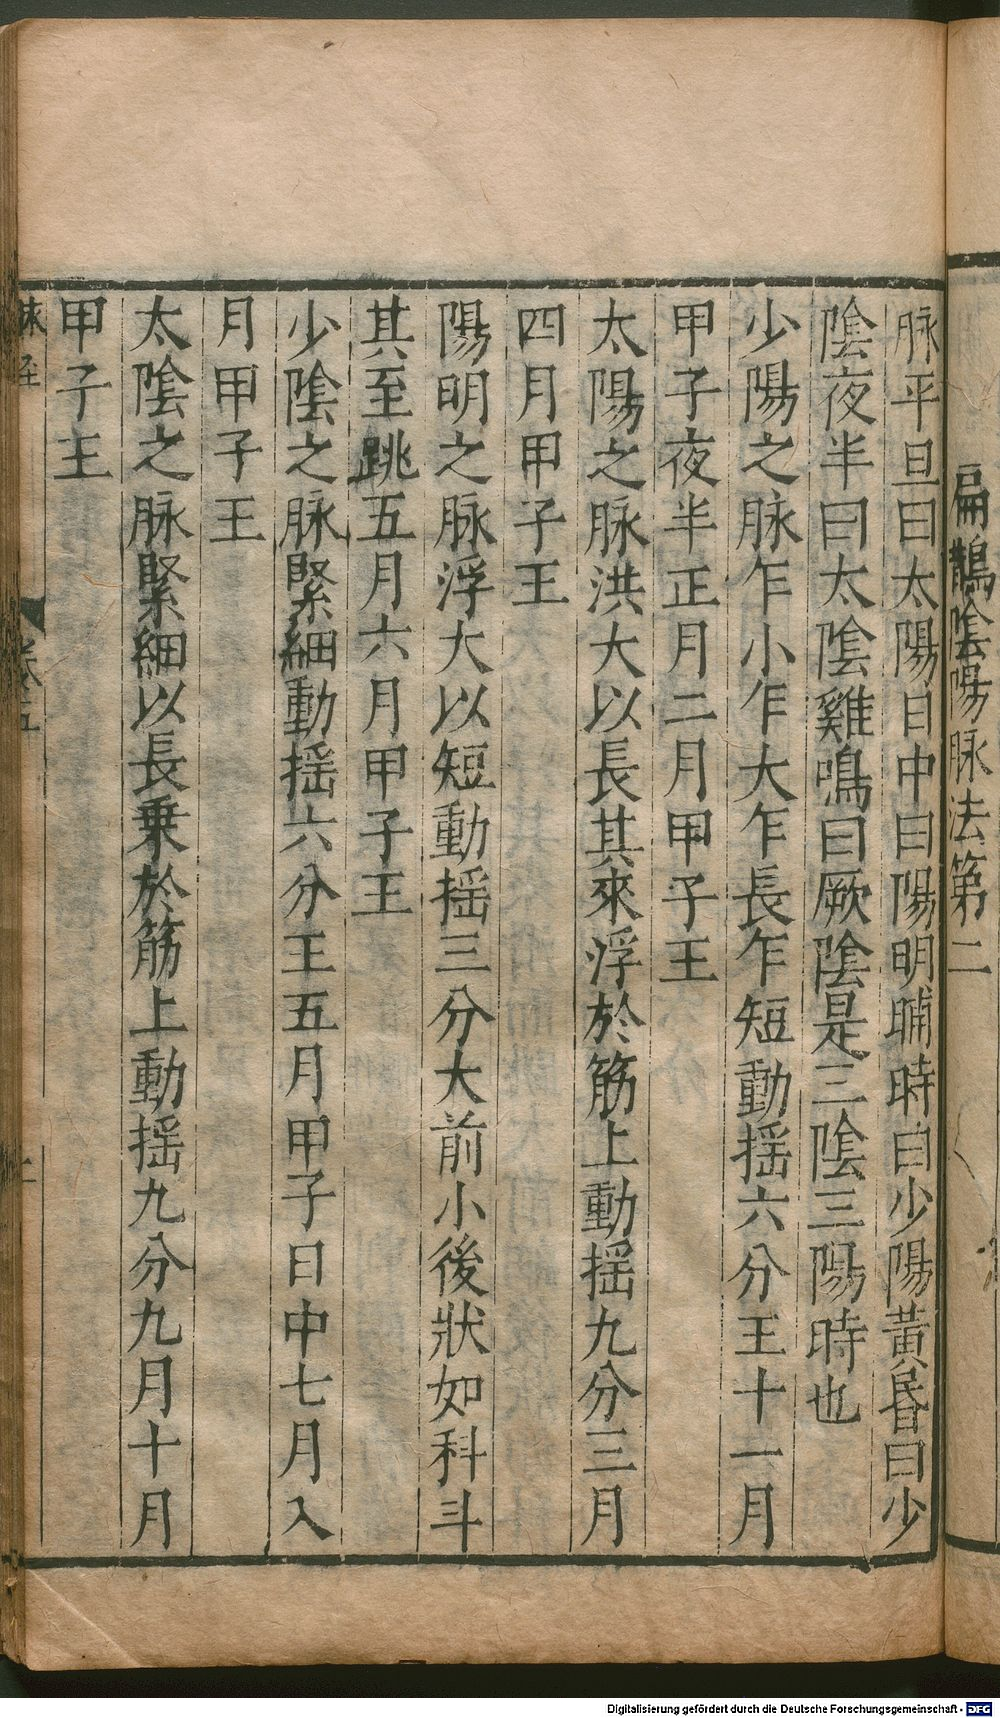 扁鵲陰陽脉法第二
脉平旦曰太陽日中曰陽明晡時曰少陽黃昬曰少
陰夜半曰太陰雞鳴曰厥陰是三陰三陽時也
少陽之脉乍小乍大乍長乍短動揺六分王十一月
甲子夜半正月二月甲子王
太陽之脉洪大以長其來浮於筋上動揺九分三月
四月甲子王
陽明之脉浮大以短動揺三分大前小後狀如科斗
其至跳五月六月甲子王
少陰之脉緊細動揺六分王五月甲子日中七月入
月甲子王
太陰之脉緊細以長乗於筋上動揺九分九月十月
甲子王
Digitalisierung gefördert durch die Deutsche Forschungsgemeinschaft - DFG